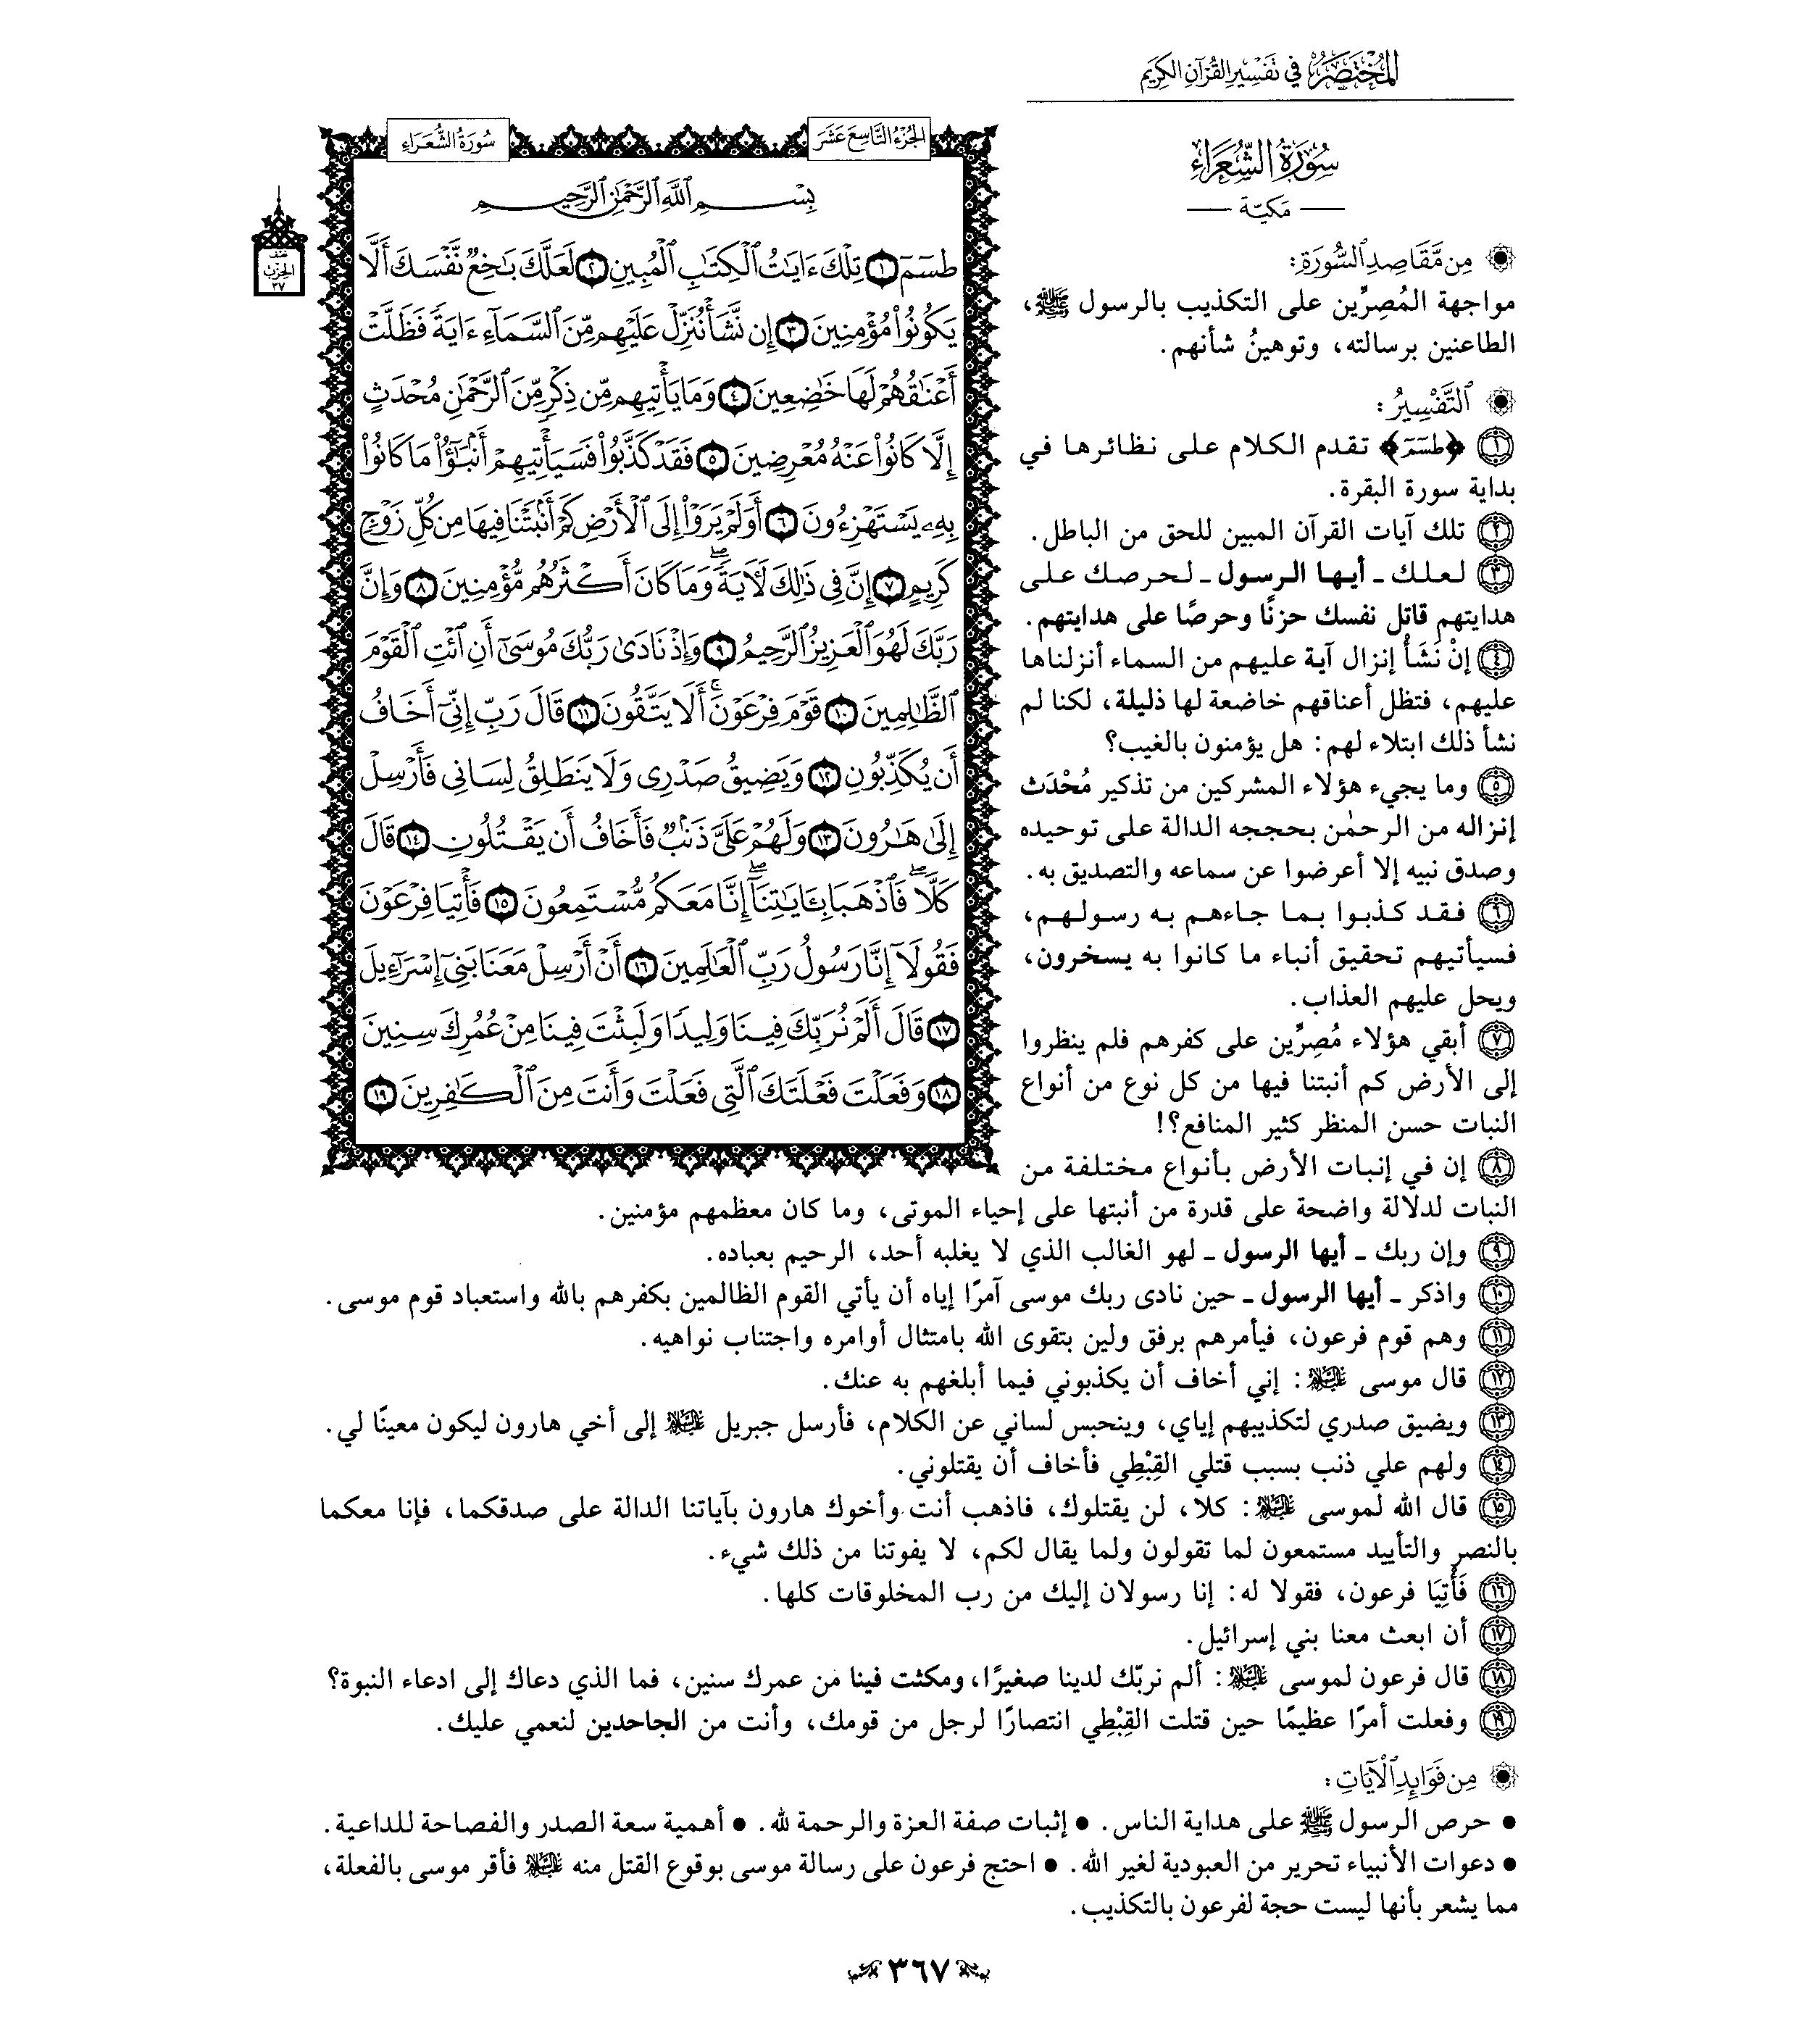 المُخْتَصَرُ في تَفْسِيرِ القُرْآنِ الكَرِيمِ
سُورَةُ الشُّعَرَاءِ
مَكيّة
مِن مَّقَاصِدِ ٱلسُّورَةِ:
مواجهة المُصِرِّين على التكذيب بالرسول ﷺ،
الطاعنين برسالته، وتوهينُ شأنهم.
ٱلتَّفْسِيرُ:
١ ﴿طسٓمٓ﴾ تقدم الكلام على نظائرها في
بداية سورة البقرة.
٢ تلك آيات القرآن المبين للحق من الباطل.
٣ لعلك ـ أيها الرسول ـ لحرصك على
هدايتهم قاتل نفسك حزنًا وحرصًا على هدايتهم.
٤ إنْ نَشَأْ إنزال آية عليهم من السماء أنزلناها
عليهم، فتظل أعناقهم خاضعة لها ذليلة، لكنا لم
نشأ ذلك ابتلاء لهم: هل يؤمنون بالغيب؟
٥ وما يجيء هؤلاء المشركين من تذكير مُحْدَث
إنزاله من الرحمٰن بحججه الدالة على توحيده
وصدق نبيه إلا أعرضوا عن سماعه والتصديق به.
٦ فقد كذبوا بما جاءهم به رسولهم،
فسيأتيهم تحقيق أنباء ما كانوا به يسخرون،
ويحل عليهم العذاب.
٧ أبقي هؤلاء مُصِرِّين على كفرهم فلم ينظروا
إلى الأرض كم أنبتنا فيها من كل نوع من أنواع
النبات حسن المنظر كثير المنافع؟!
٨ إن في إنبات الأرض بأنواع مختلفة من
النبات لدلالة واضحة على قدرة من أنبتها على إحياء الموتى، وما كان معظمهم مؤمنين.
٩ وإن ربك ـ أيها الرسول ـ لهو الغالب الذي لا يغلبه أحد، الرحيم بعباده.
١٠ واذكر ـ أيها الرسول ـ حين نادى ربك موسى آمرًا إياه أن يأتي القوم الظالمين بكفرهم بالله واستعباد قوم موسى.
١١ وهم قوم فرعون، فيأمرهم برفق ولين بتقوى الله بامتثال أوامره واجتناب نواهيه.
١٢ قال موسى عليه السلام: إني أخاف أن يكذبوني فيما أبلغهم به عنك.
١٣ ويضيق صدري لتكذيبهم إياي، وينحبس لساني عن الكلام، فأرسل جبريل عليه السلام إلى أخي هارون ليكون معينًا لي.
١٤ ولهم علي ذنب بسبب قتلي القِبْطِي فأخاف أن يقتلوني.
١٥ قال الله لموسى عليه السلام: كلا، لن يقتلوك، فاذهب أنت وأخوك هارون بآياتنا الدالة على صدقكما، فإنا معكما
بالنصر والتأييد مستمعون لما تقولون ولما يقال لكم، لا يفوتنا من ذلك شيء.
١٦ فَأْتِيَا فرعون، فقولا له: إنا رسولان إليك من رب المخلوقات كلها.
١٧ أن ابعث معنا بني إسرائيل.
١٨ قال فرعون لموسى عليه السلام: ألم نربّك لدينا صغيرًا، ومكثت فينا من عمرك سنين، فما الذي دعاك إلى ادعاء النبوة؟
١٩ وفعلت أمرًا عظيمًا حين قتلت القِبْطِي انتصارًا لرجل من قومك، وأنت من الجاحدين لنعمي عليك.
مِن فَوَائِدِ ٱلْآيَاتِ:
• حرص الرسول ﷺ على هداية الناس. • إثبات صفة العزة والرحمة لله. • أهمية سعة الصدر والفصاحة للداعية.
• دعوات الأنبياء تحرير من العبودية لغير الله. • احتج فرعون على رسالة موسى بوقوع القتل منه عليه السلام فأقر موسى بالفعلة،
مما يشعر بأنها ليست حجة لفرعون بالتكذيب.
الجُزْءُ التَّاسِعَ عَشَرَ
سُورَةُ الشُّعَرَاءِ
بِسْمِ ٱللَّهِ ٱلرَّحْمَٰنِ ٱلرَّحِيمِ
طسٓمٓ ١ تِلْكَ ءَايَٰتُ ٱلْكِتَٰبِ ٱلْمُبِينِ ٢ لَعَلَّكَ بَٰخِعٌ نَّفْسَكَ أَلَّا
يَكُونُوا۟ مُؤْمِنِينَ ٣ إِن نَّشَأْ نُنَزِّلْ عَلَيْهِم مِّنَ ٱلسَّمَآءِ ءَايَةً فَظَلَّتْ
أَعْنَٰقُهُمْ لَهَا خَٰضِعِينَ ٤ وَمَا يَأْتِيهِم مِّن ذِكْرٍ مِّنَ ٱلرَّحْمَٰنِ مُحْدَثٍ
إِلَّا كَانُوا۟ عَنْهُ مُعْرِضِينَ ٥ فَقَدْ كَذَّبُوا۟ فَسَيَأْتِيهِمْ أَنۢبَٰٓؤُا۟ مَا كَانُوا۟
بِهِۦ يَسْتَهْزِءُونَ ٦ أَوَلَمْ يَرَوْا۟ إِلَى ٱلْأَرْضِ كَمْ أَنۢبَتْنَا فِيهَا مِن كُلِّ زَوْجٍ
كَرِيمٍ ٧ إِنَّ فِى ذَٰلِكَ لَءَايَةً ۖ وَمَا كَانَ أَكْثَرُهُم مُّؤْمِنِينَ ٨ وَإِنَّ
رَبَّكَ لَهُوَ ٱلْعَزِيزُ ٱلرَّحِيمُ ٩ وَإِذْ نَادَىٰ رَبُّكَ مُوسَىٰٓ أَنِ ٱئْتِ ٱلْقَوْمَ
ٱلظَّٰلِمِينَ ١٠ قَوْمَ فِرْعَوْنَ ۚ أَلَا يَتَّقُونَ ١١ قَالَ رَبِّ إِنِّىٓ أَخَافُ
أَن يُكَذِّبُونِ ١٢ وَيَضِيقُ صَدْرِى وَلَا يَنطَلِقُ لِسَانِى فَأَرْسِلْ
إِلَىٰ هَٰرُونَ ١٣ وَلَهُمْ عَلَىَّ ذَنۢبٌ فَأَخَافُ أَن يَقْتُلُونِ ١٤ قَالَ
كَلَّا ۖ فَٱذْهَبَا بِـَٔايَٰتِنَآ ۖ إِنَّا مَعَكُم مُّسْتَمِعُونَ ١٥ فَأْتِيَا فِرْعَوْنَ
فَقُولَآ إِنَّا رَسُولُ رَبِّ ٱلْعَٰلَمِينَ ١٦ أَنْ أَرْسِلْ مَعَنَا بَنِىٓ إِسْرَٰٓءِيلَ
١٧ قَالَ أَلَمْ نُرَبِّكَ فِينَا وَلِيدًا وَلَبِثْتَ فِينَا مِنْ عُمُرِكَ سِنِينَ
١٨ وَفَعَلْتَ فَعْلَتَكَ ٱلَّتِى فَعَلْتَ وَأَنتَ مِنَ ٱلْكَٰفِرِينَ ١٩
نصف
الحزب
٣٧
٣٦٧